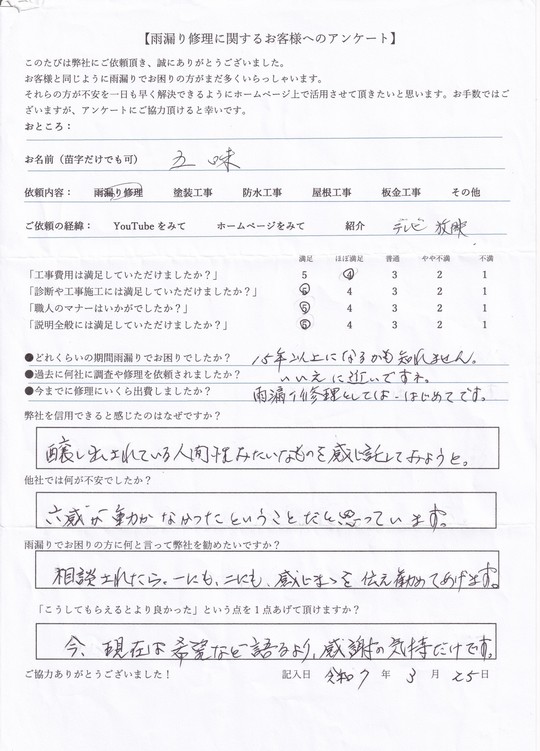 【雨漏り修理に関するお客様へのアンケート】
このたびは弊社にご依頼頂き、誠にありがとうございました。
お客様と同じように雨漏りでお困りの方がまだ多くいらっしゃいます。
それらの方が不安を一日も早く解決できるようにホームページ上で活用させて頂きたいと思います。お手数ではご
ざいますが、アンケートにご協力頂けると幸いです。
おところ：
お名前（苗字だけでも可） 五味
依頼内容： 雨漏り修理 塗装工事 防水工事 屋根工事 板金工事 その他
ご依頼の経緯： YouTubeをみて ホームページをみて 紹介 テレビ放映
満足 ほぼ満足 普通 やや不満 不満
「工事費用は満足していただけましたか？」 5 4 3 2 1
「診断や工事施工には満足していただけましたか？」 5 4 3 2 1
「職人のマナーはいかがでしたか？」 5 4 3 2 1
「説明全般には満足していただけましたか？」 5 4 3 2 1
●どれくらいの期間雨漏りでお困りでしたか？ 15年以上になるかも知れません。
●過去に何社に調査や修理を依頼されましたか？ いいえに近いですネ。
●今までに修理にいくら出費しましたか？ 雨漏り修理としては、はじめてです。
弊社を信用できると感じたのはなぜですか？
醸し出されている人間性みたいなものを感じ託してみようと。
他社では何が不安でしたか？
六感が動かなかったということだと思っています。
雨漏りでお困りの方に何と言って弊社を勧めたいですか？
相談されたら。一にも、二にも、感じまゝを伝え勧めてあげます。
「こうしてもらえるとより良かった」という点を1点あげて頂けますか？
今、現在は希望など語るより、感謝の気持だけです。
ご協力ありがとうございました！ 記入日 令和7年3月25日